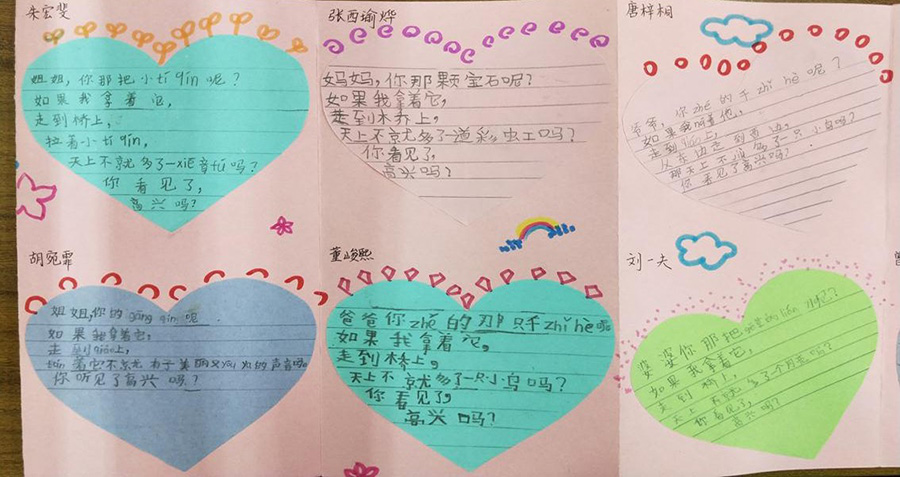 朱宏斐
姐姐,你那把小tí qín呢?
如果我拿着它,
走到桥上,
拉着小tí qín,
天上不就多了一xiē音fú吗?
你看见了,
高兴吗?
张西瑜烨
妈妈,你那颗宝石呢?
如果我拿着它,
走到木桥上,
天上不就多了一道彩虫工吗?
你看见了,
高兴吗?
唐梓桐
爷爷,你zhé的千zhǐ hè呢?
如果我拿着它,
走到qiáo上,
从东边走到西边,
那天上不就多了一只小鸟吗?
你看见了高兴吗?
胡宛霏
姐姐,你的gāng qín呢
如果我拿着它,
走到qiáo上,
着它不就
你听见了高兴吗?
董峻熙
爸爸你zhé的那只千zhǐ hè呢
如果我拿着它,
走到桥上,
天上不就多了一只小鸟吗?
你看见了,
高兴吗?
刘一夫
婆婆你那把
如果我拿着它,
走到桥上,
天上不就多了个月亮吗?
你看见了,
高兴吗?